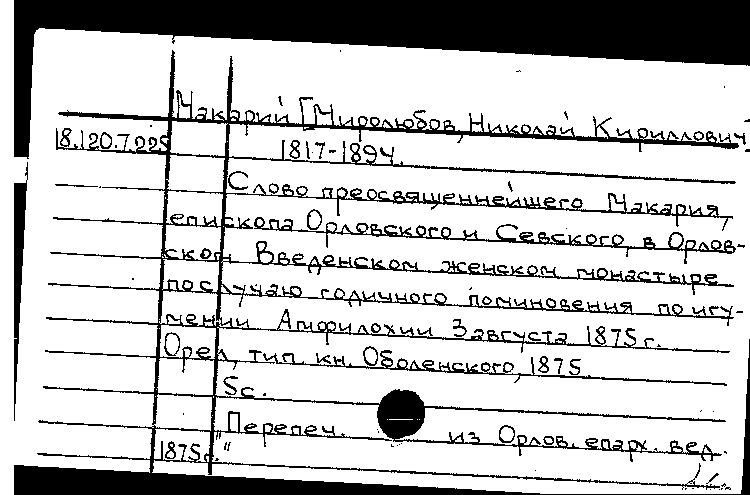 Макарий [Миролюбов, Николай Кириллович]
18.120.7.225 1817-1894.
Слово преосвященнейшего Макария,
епископа Орловского и Севского, в Орлов-
ском Введенском женском монастыре
по случаю годичного поминовения по игу-
мении Амфилохии 3 августа 1875 г.
Орел, тип. кн. Оболенского, 1875.
5с.
Перепеч. из "Орлов. епарх. вед.
1875г."